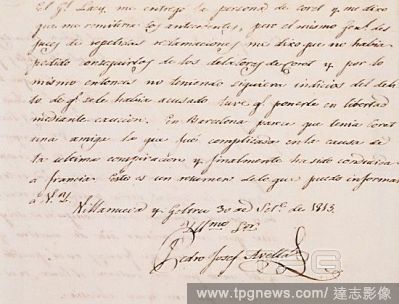 el Gl. Lacy, me entregó la persona de Coret y me dixo
que me remitiria los antecedentes, pero el mismo Genl. des
pues de repetidas reclamaciones me dixo que no habia
podido conseguirlos de los delatores de Coret y por lo
mismo entonces no teniendo siquiera indicios del deli
to de qe. se le habia acusado tuve qe. ponerle en libertad
mediante caucion. En Barcelona parece que tenia Coret
una amiga la que fué complicada en la causa de
la ultima conspiracion y finalmente ha sido conducida
a francia. Esto es un resumen de lo que puedo informar
á V. Y.
Villanueva y Geltru 30 de Set. de 1813.
Yllmo. Sr.
Pedro Josef Avellá
www.tpgnews.com/ 達志影像